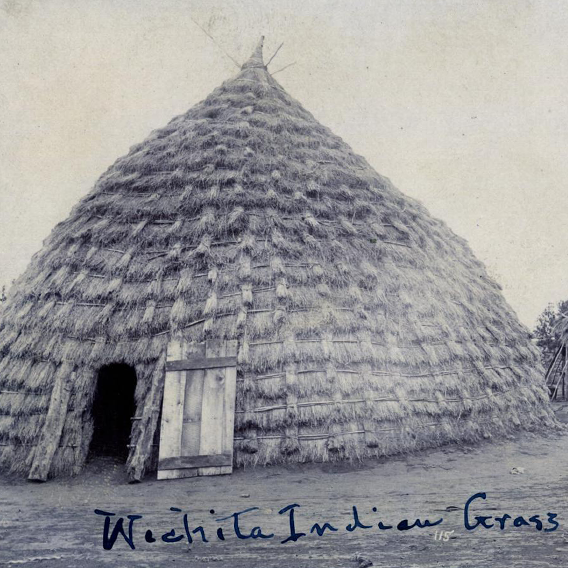 Wichita Indian Grass
115